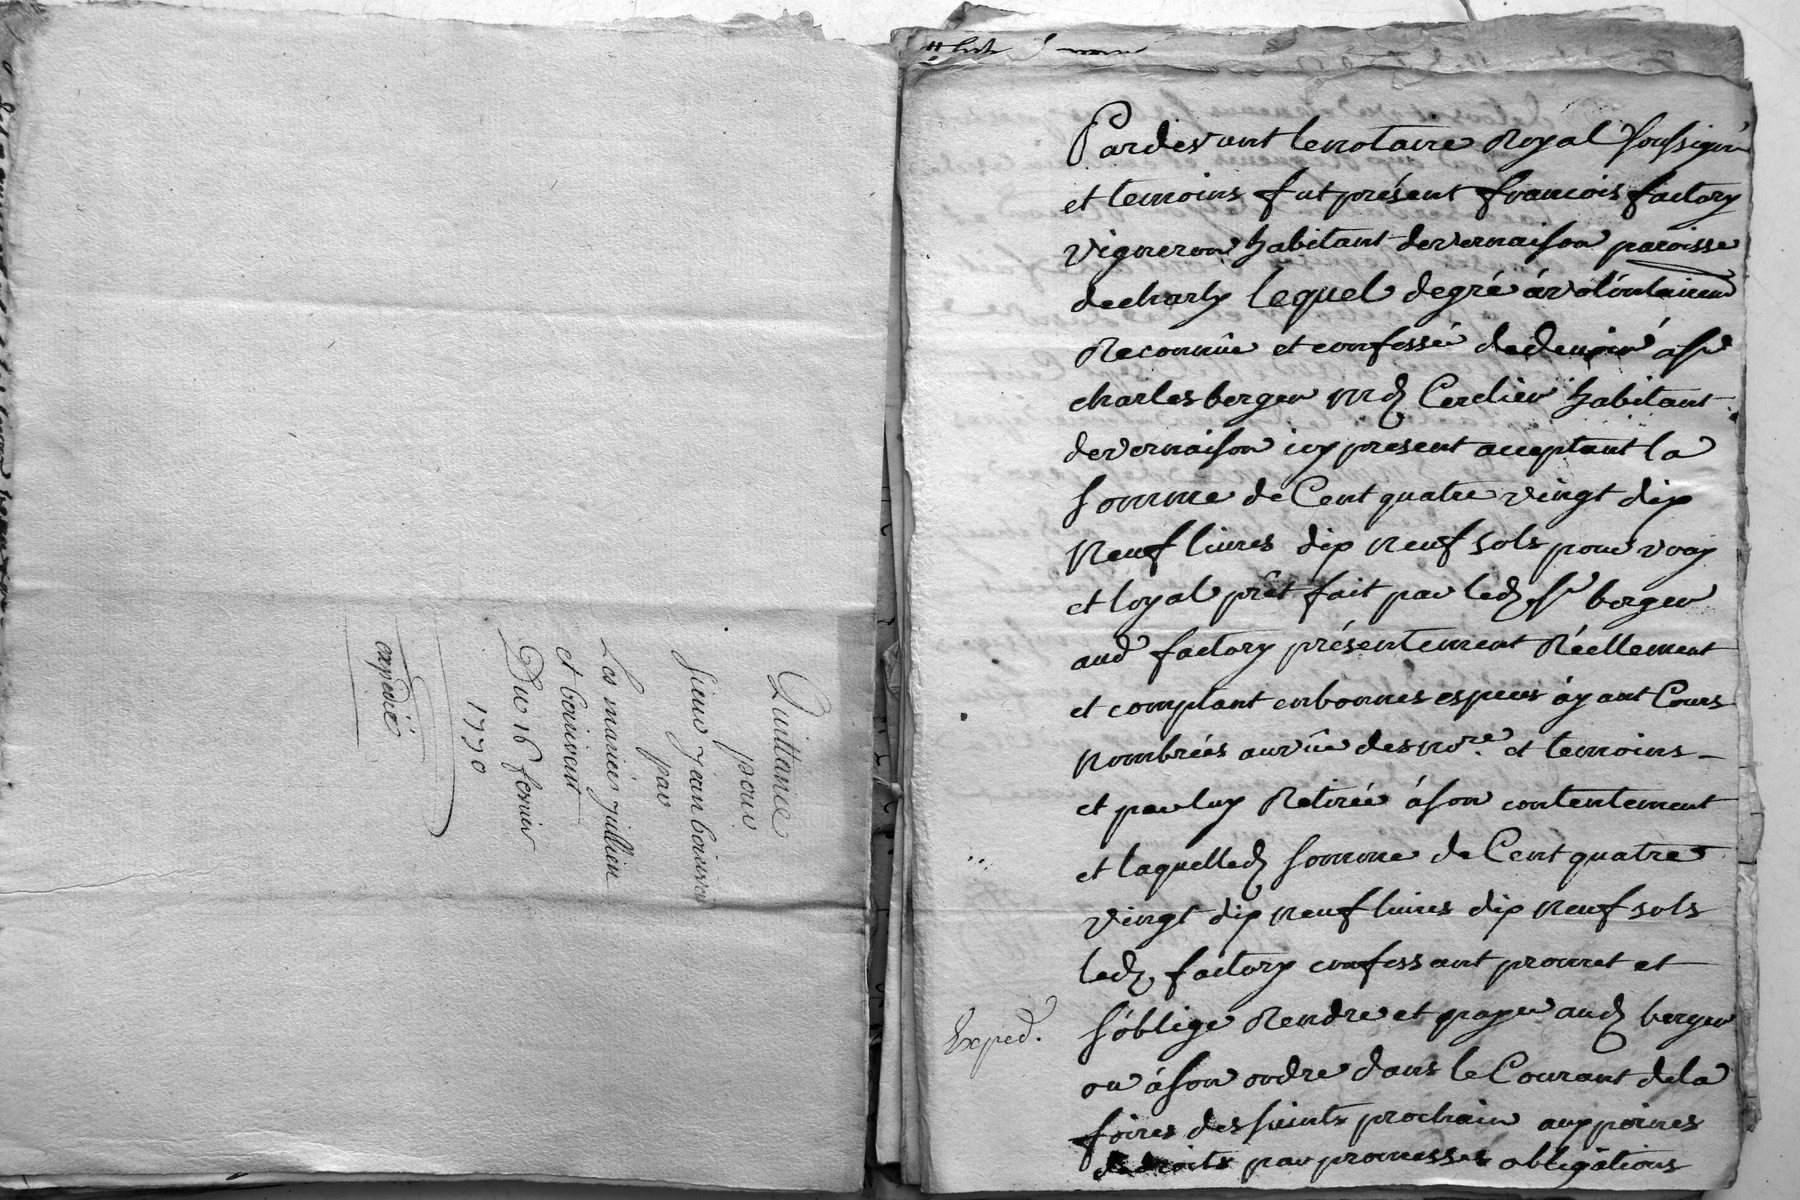 Quittance
pour
sieur jean boiron
par
Les mariés jullien
et boiron
Du 16 fevrier
1770
expedié
Pardevant le notaire Royal soussigné
et temoins fut présent francois factory
vigneron habitant de vernaison paroisse
de charly lequel de gré á volontairemt
Reconnûe et confessée de devoir á sr
charles berger md Cerclier habitant
de vernaison icy present acceptant la
somme de Cent quatre vingt dix
neuf livres dix neuf sols pour vray
et loyal prêt fait par led. sr berger
aud factory présentement Réellement
et comptant en bonnes especes áyant Cours
nombrées au vûe des nore et temoins
et par luy Retirée á son contentement
et laquelled somme de Cent quatre
vingt dix neuf livres dix neuf sols
led. factory confessant promet et
s'oblige Rendre et payer aud berger
ou á son ordre dans le Courant de la
foires des saints prochain aux peines
de droits par promesses obligâtions
Exped.